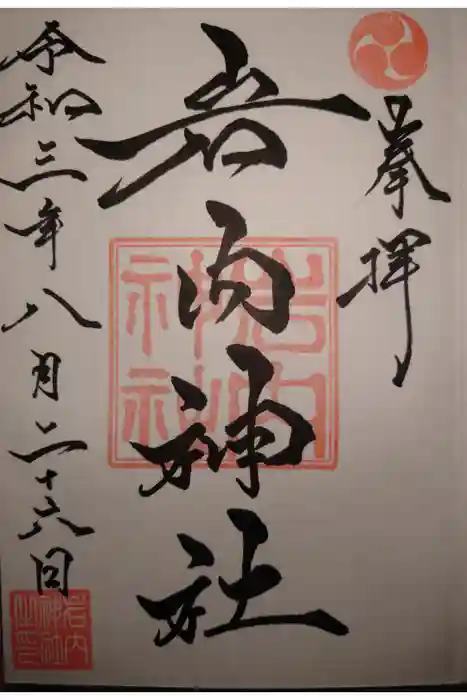 奉拝
岩内神社
岩内神社
令和三年八月二十六日
岩内神社之印